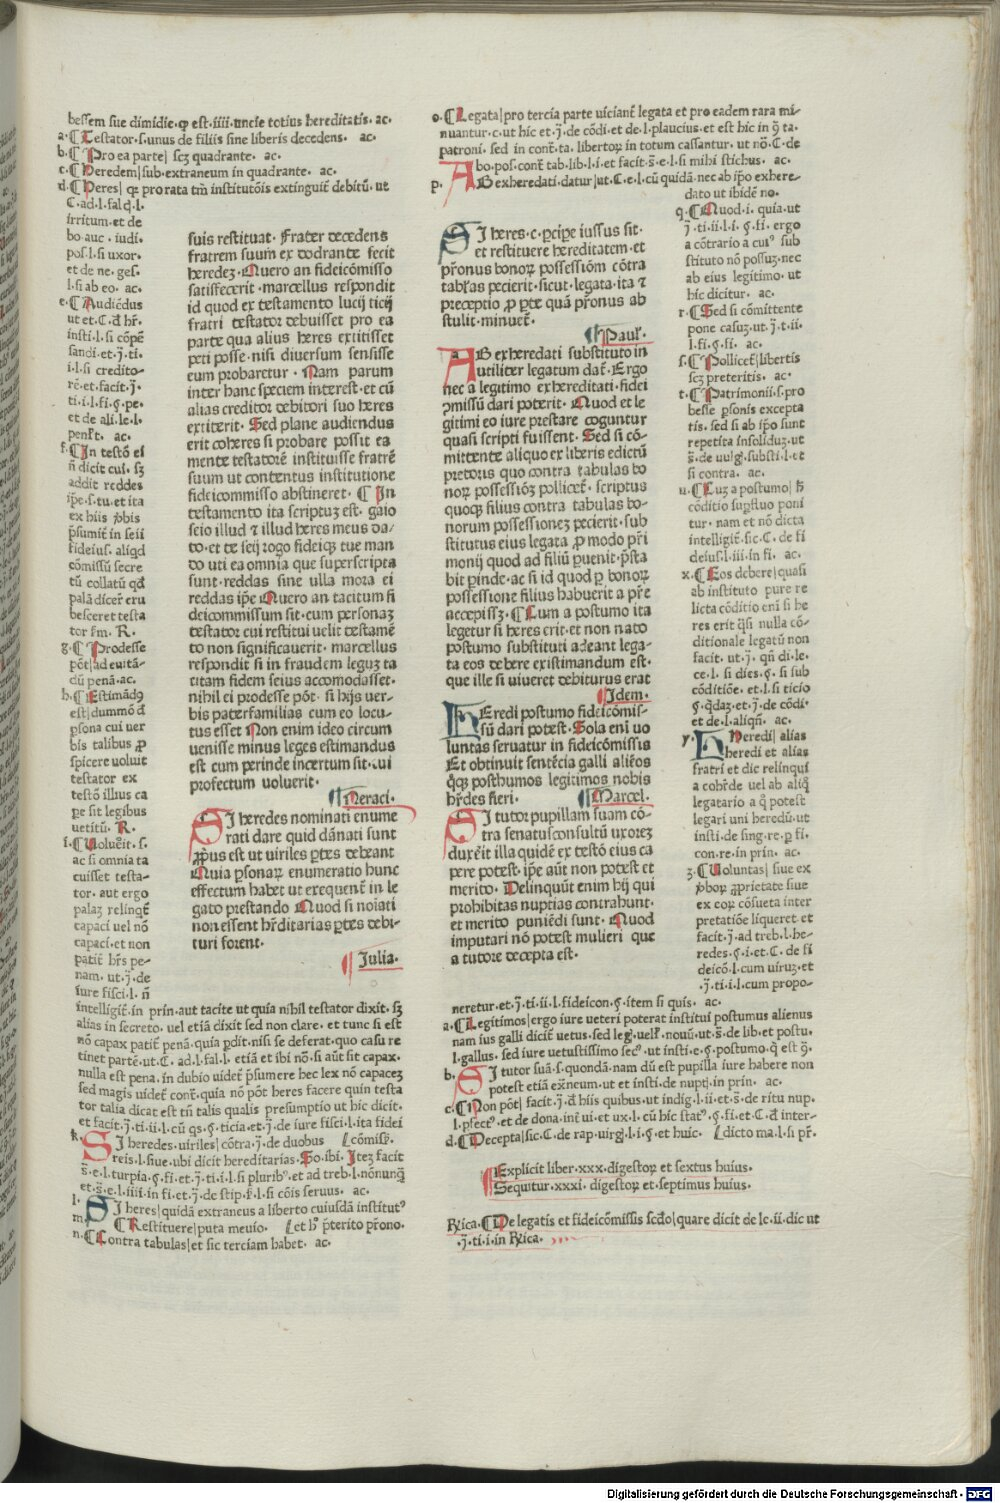 bessem sue dimidie·ꝙ est·iiii·uncie totius hereditatis·ac·
a·¶Testator·s·unus de filiis sine liberis decedens· ac·
b·¶Pro ea parte| scꝫ quadrante· ac·
c·¶Heredem|sub·extraneum in quadrante· ac·
d·¶Heres| ꝙ pro rata tm̄ institutōis extinguit̄ debitū· ut
C·ad·l·falcͥ·l·
irritum·et de
bo·auc·iudi·
pos·l·si uxor·
et de ne·ges·
l·si ab eo·ac·
e·¶Audiēdus
ut et·C·đ hr̄·
insti·l·si cōpē
sandi·et·j̄·ti·
i·l·si credito-
rē·et facit·j̄·
ti·i·l·fi·ꝯ·pe·
et de ali·le·l·
penľt· ac·
f·¶In testō ei
n̄ dicit cui·sꝫ
addit reddes
ip̄e·s·tu·et ita
ex hiis ꝓbis
p̄sumit̄ in seii
fideius·aliqd
cōmissū secre
tū collatū qđ
palā dicer̄ eru
besceret testa
tor fm·R·
g·¶Prodesse
pōt|ad euitā-
dū penā·ac·
h·¶Estimādꝰ
est|dummōđ
ꝑsona cui uer
bis talibus ꝓ
spicere uoluit
testator ex
testō illius ca
pe sit legibus
uetitū· R·
i·¶Voluerit·s·
ac si omnia ta
cuisset testa-
tor·aut ergo
palaꝫ relinqt̄
capaci uel nō
capaci·et non
patit̄ hr̄s pe-
nam·ut·j̄·de
iure fisci·l·n̄
suis restituat· Frater decedens
fratrem suum ex dodrante fecit
heredeꝫ·Quero an fideicōmisso
satisfecerit·marcellus respondit
id quod ex testamento lucij ticij
fratri testator debuisset pro ea
parte qua alius heres extitisset
peti posse·nisi diuersum sensisse
eum probaretur· Nam parum
inter hanc speciem interest·et cū
alias creditor debitori suo heres
extiterit· Sed plane audiendus
erit coheres si probare possit ea
mente testatorē instituisse fratrē
suum ut contentus institutione
fideicommisso abstineret·¶In
testamento ita scriptuꝫ est· gaio
seio illud ⁊ illud heres meus da-
to·et te seij rogo fideiqꝫ tue man
do uti ea omnia que superscripta
sunt·reddas sine ulla mora ei
reddas ip̄e Quero an tacitum fi
deicommissum sit·cum personaꝫ
testator cui restitui uelit testamē
to non significauerit· marcellus
respondit si in fraudem leguꝫ ta
citam fidem seius accomodasset·
nihil ei prodesse pōt· si hijs uer-
bis paterfamilias cum eo locu-
tus esset Non enim ideo circum
uenisse minus leges estimandus
est cum perinde incertum sit·cui
profectum voluerit·
¶Neraci·
SI heredes nominati enume
rati dare quid dānati sunt
ꝓpius est ut uiriles ꝑtes debeant
Quia ꝑsonaꝝ enumeratio hunc
effectum habet ut exequent̄ in le
gato prestando Quod si noīati
non essent hr̄ditarias ꝑtes debi-
turi forent·
¶Julia·
intelligit̄·in prin·aut tacite ut quia nihil testator dixit·sꝫ
alias in secreto·uel etiā dixit sed non clare·et tunc si est
nō capax patit̄ penā·quia ꝑdit·nisi se deferat·quo casu re
tinet partē·ut·C·ad·l·fal·l·etiā et ibi nō·si aūt sit capax·
nulla est pena·in dubio uidet̄ p̄sumere hec lex nō capaceꝫ
sed magis uidet̄ cont̄·quia nō pōt heres facere quin testa
tor talia dicat est tn̄ talis qualis presumptio ut hic dicit·
et facit·j̄·ti·ii·l·cū qs·ꝯ·ticia·et·j̄·de iure fisci·l·ita fidei
k·SI heredes·uiriles|cōtra·j̄·de duobus ⁅cōmiss̄·
reis·l·siue·ubi dicit hereditarias·So·ibi·Iteꝫ facit
s̄·e·l·turpia·ꝯ·fi·et·j̄·ti·i·l·si pluribꝰ·et ad treb·l·nōnunqͣ
et·s̄·e·l·iiii·in fi·et·j̄·de stip·ſ·l·si cōis seruus· ac·
l·SI heres|quidā extraneus a liberto cuiusdā institutꝰ
m·¶Restituere|puta meuio· ⁅et hꝰ p̄terito pr̄ono·
n·¶Contra tabulas|et sic terciam habet· ac·
o·¶Legata|pro tercia parte viciant̄ legata et pro eadem rara mi-
nuantur·c·ut hic et·j̄·de cōdi·et de·l·plaucius·et est hic in ꝯ̄ ta·
patroni· sed in cont̄·ta·libertoꝝ in totum cassantur·ut nō·C·de
bo·pos·cont̄ tab·lib·l·i·et facit·s̄·e·l·si mihi stichus· ac·
p·AB exheredati·datur|ut·C·e·l·cū quidā·nec ab ip̄o exhere-
dato ut ibidē no·
SI heres·c·ꝑcipe iussus sit·
et restituere hereditatem·et
pr̄onus bonoꝝ possessiōm cōtra
tablas pecierit·sicut·legata·ita ⁊
preceptio ꝓ ꝑte quā pr̄onus ab
stulit·minuet̄·
¶Pauľ·
AB exheredati substituto in
utiliter legatum dat̄·Ergo
nec a legitimo exhereditati·fidei
ꝯmissū dari poterit· Quod et le
gitimi eo iure prestare coguntur
quasi scripti fuissent· Sed si cō-
mittente aliquo ex liberis edictū
pretoris quo contra tabulas bo
noꝝ possessiōꝫ pollicet̄· scriptus
quoqꝫ filius contra tabulas bo-
norum possessioneꝫ pecierit·sub
stitutus eius legata ꝓ modo pr̄i
monij quod ad filiū ꝑuenit·p̄sta
bit ꝑinde·ac si id quod ꝑ bonoꝝ
possessione filius habuerit a pr̄e
accepissꝫ·¶Cum a postumo ita
legetur si heres erit·et non nato
postumo substituti adeant lega-
ta eos debere existimandum est·
que ille si viueret debiturus erat
¶Idem·
HEredi postumo fideicōmis-
sū dari potest·Sola enī uo
luntas seruatur in fideicōmissis
Et obtinuit sentēcia galli aliēos
qͦqꝫ posthumos legitimos nobis
hr̄des fieri· ¶Marcel·
SI tutor pupillam suam cō-
tra senatusconsultū uxoreꝫ
duxeit illa quidē ex testō eius ca
pere potest·ip̄e aūt non potest et
merito· Delinqūut enim hij qui
prohibitas nuptias contrahunt·
et merito puniēdi sunt· Quod
imputari nō potest mulieri que
a tutore decepta est·
q·¶Quod·i·quia·ut
j̄·ti·ii·l·i·ꝯ·fi·ergo
a cōtrario a cuiꝰ sub
stituto nō possuꝫ·nec
ab eius legitimo·ut
hic dicitur· ac·
r·¶Sed si cōmittente
pone casuꝫ·ut j̄·t·ii·
l·fi·ꝯ·fi· ac·
s·¶Pollicet̄|libertis
scꝫ preteritis· ac·
t·¶Patrimonii·s·pro
besse ꝑsonis excepta
tis·sed si ab ip̄o sunt
repetita insolīduꝫ·ut
s̄·de uulg·substi·l·et
si contra· ac·
u·¶Cuꝫ a postumo| hͥ
cōditio suꝑfluo poni
tur·nam et nō dicta
intelligit̄·sic·C·de fi
deius·l·iii·in fi· ac·
x·¶Eos debere|quasi
ab instituto pure re
licta cōditio enī si he
res erit qͣsi nulla cō-
ditionale legatū non
facit·ut·j̄·qn̄ di·le·
ce·l·si dies·ꝯ·si sub
cōditiōe·et·l·si ticio
ꝯ·qͥdaꝫ·et·j̄·de cōdi·
et de·l·aliqn̄· ac·
y·HEredi| alias
heredi et alias
fratri et dic relinqui
a cohr̄de uel ab aliqͦ
legatario a qͦ potest
legari uni heredū·ut
insti·de sing·re·ꝑ fi·
con·re·in prin· ac·
z·¶Voluntas| siue ex
ꝓboꝝ ꝓprietate siue
ex eoꝝ cōsueta inter
pretatiōe liqueret·et
facit·j̄·ad treb·l·he-
redes·ꝯ·i·et·C·de fi
deicō·l·cum uiruꝫ·et
·j̄·ti·i·l·cum propo-
neretur·et·j̄·ti·ii·l·fideicon·ꝯ·item si quis· ac·
a·¶Legitimos|ergo iure ueteri poterat institui postumus alienus
nam ius galli dicit̄ uetus·sed legꝭ·uelľ·nouū·ut·s̄·de lib·et postu·
l·gallus·sed iure uetustissimo secꝰ·ut insti·e·ꝯ·postumo·qͥ est ꝯ̄·
b·SI tutor suā·s·quondā·nam dū est pupilla iure habere non
potest etiā exͣneum·ut et insti·de nuptj·in prin· ac·
c·¶Non pōt| facit·j̄·đ hiis quibus·ut indig·l·ii·et·s̄·de ritu nup·
l·p̄fectꝰ·et de dona·int̄ ui·et ux·l·cū hic statꝰ·ꝯ·fi·et·C·đ inter-
d·¶Decepta|sic·C·de rap·uirg·l·i·ꝯ·et huic· ⁅dicto ma·l·si pr̄·
¶Explicit liber·xxx·digestoꝝ et sextus huius·
¶Sequitur·xxxi·digestoꝝ et·septimus huius·
Rꝛica·¶De legatis et fideicōmissis scđo|quare dicit de le·ii·dic ut
·j̄·ti·i·in Rꝛica·
Digitalisierung gefördert durch die Deutsche Forschungsgemeinschaft - DFG